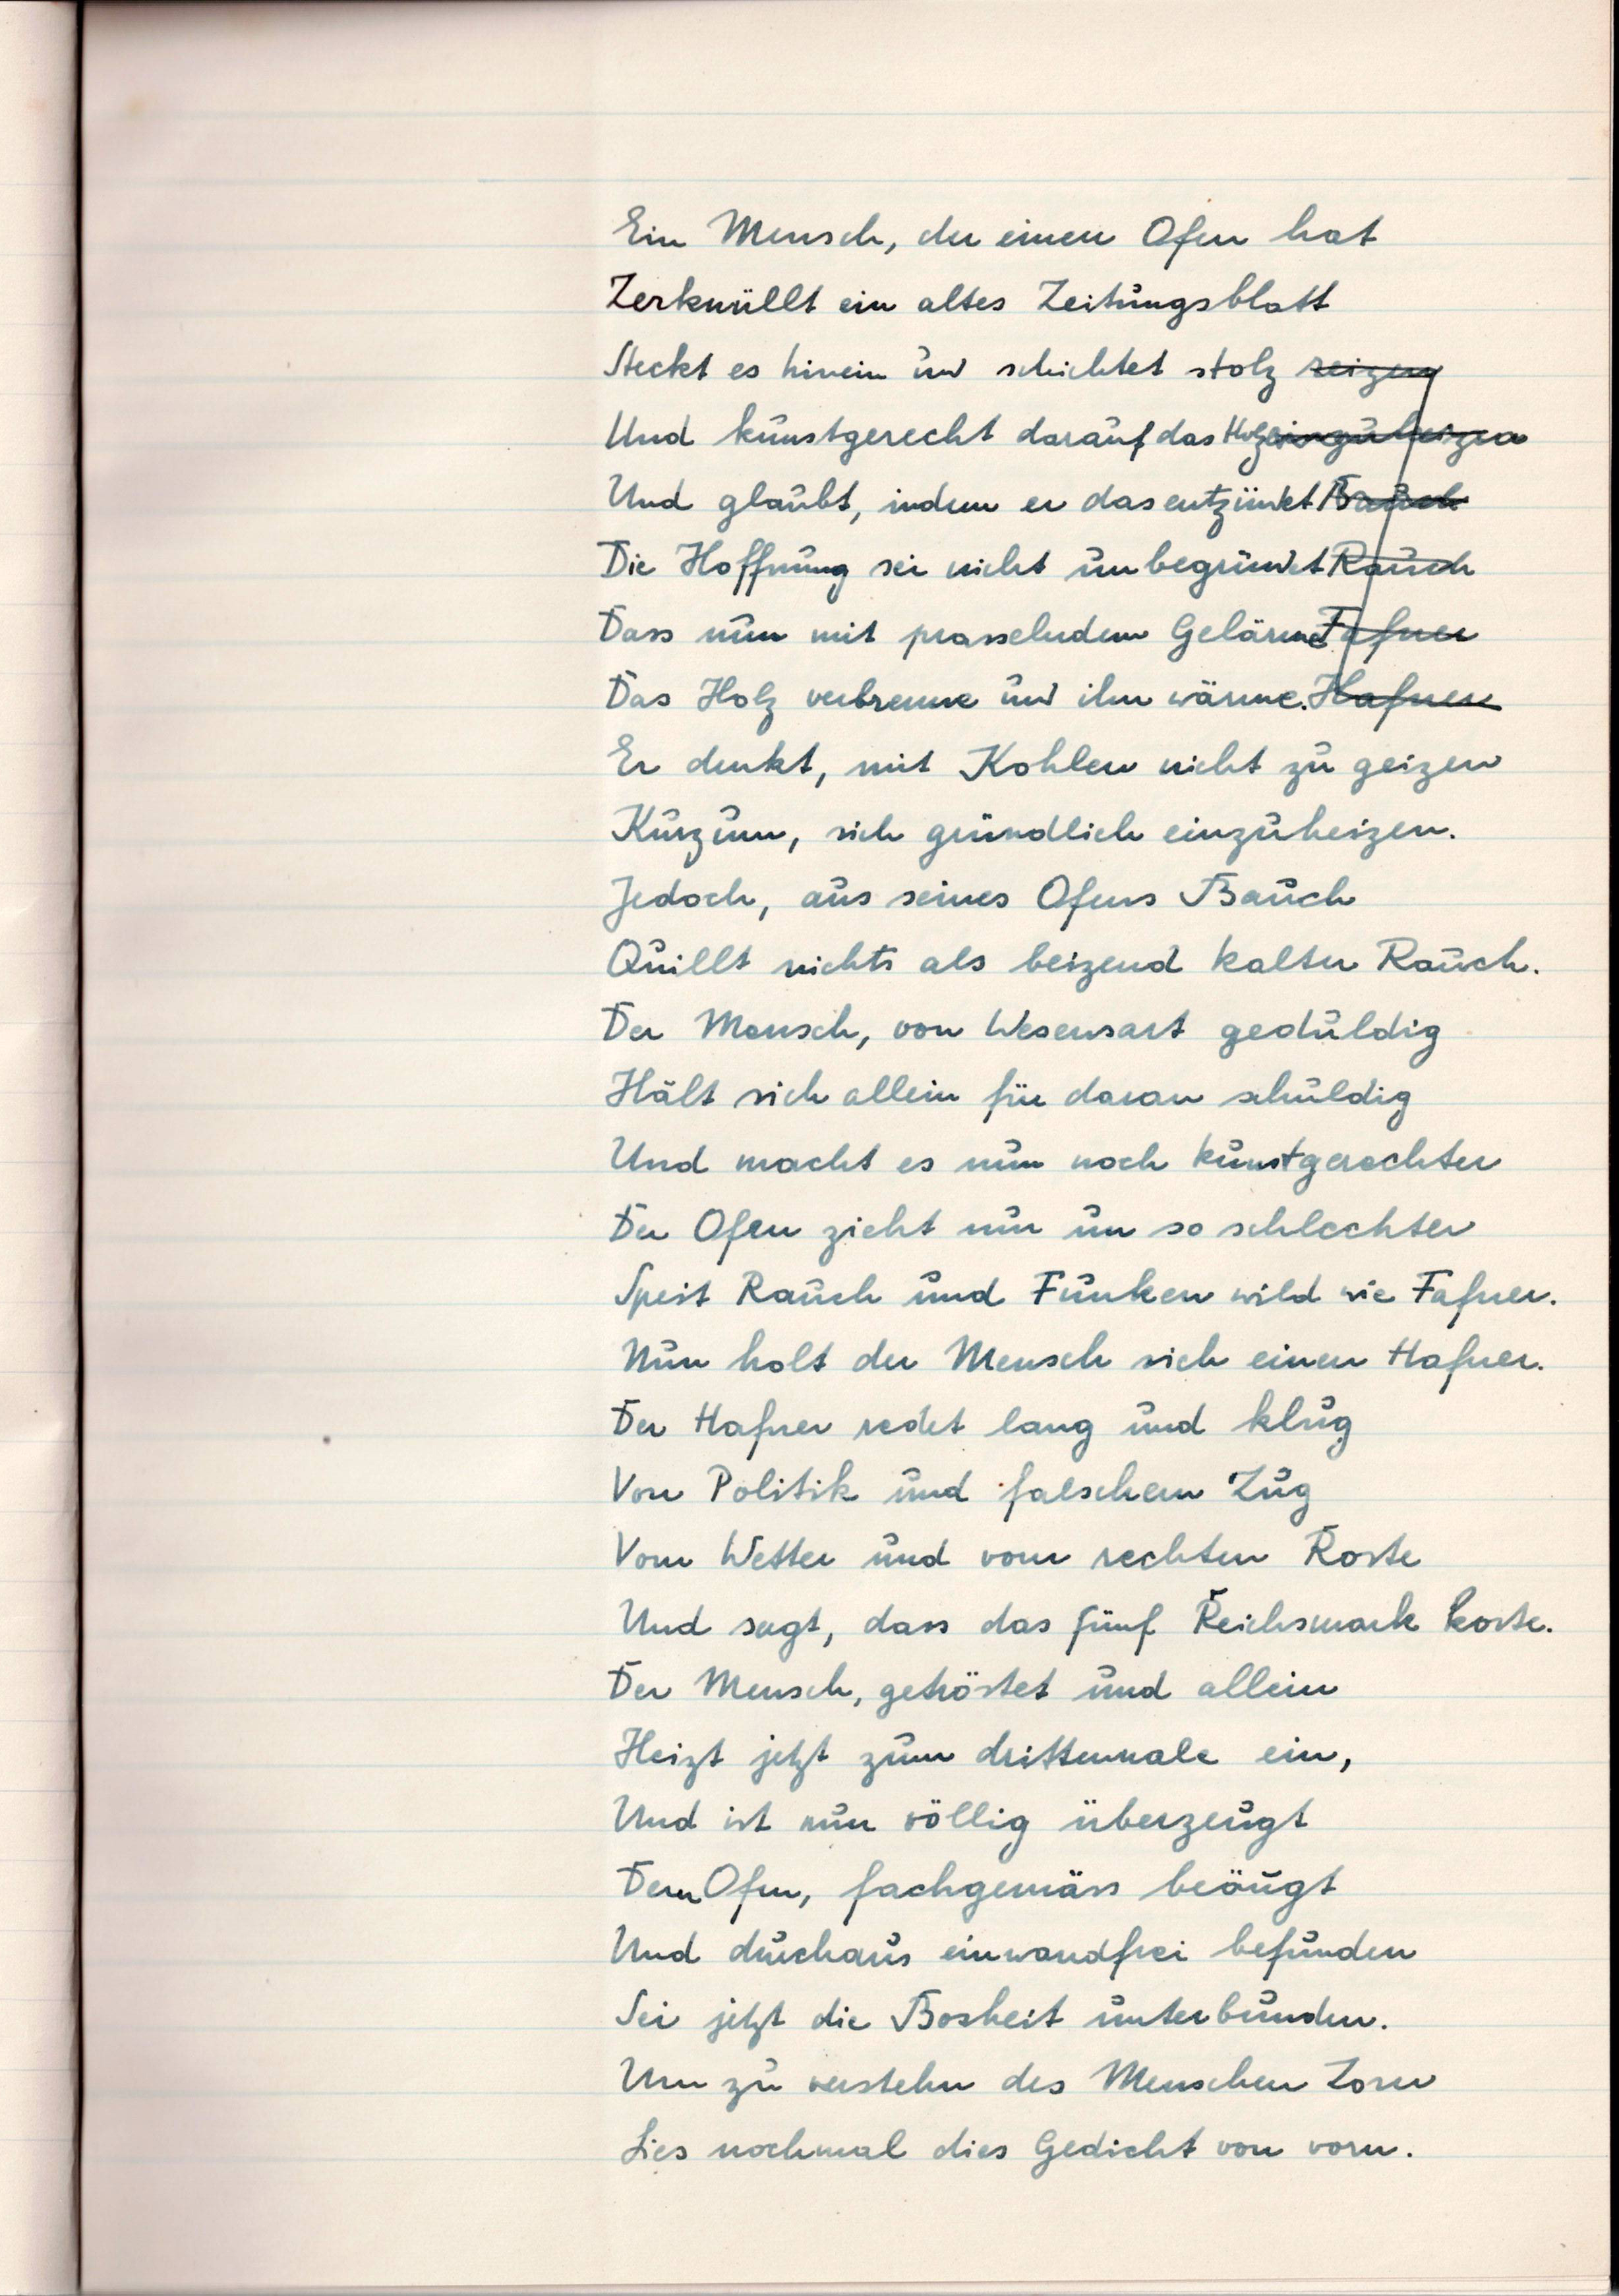 Ein Mensch, der einen Ofen hat
Zerknüllt ein altes Zeitungsblatt
Steckt es hinein und schichtet stolz reizen
Und kunstgerecht darauf das Holz einzuheizen
Und glaubt, indem er das entzündet Bauch
Die Hoffnung sei nicht unbegründet Rauch
Dass nun mit prasselndem Gelärme Fafner
Das Holz verbrenne und ihn wärme. Hafner
Er denkt, mit Kohlen nicht zu geizen
Kurzum, sich gründlich einzuheizen.
Jedoch, aus seines Ofens Bauch
Quillt nichts als beizend kalter Rauch.
Der Mensch, von Wesensart geduldig
Hält sich allein für daran schuldig
Und macht es nun noch kunstgerechter
Der Ofen zieht nur um so schlechter
Speit Rauch und Funken wild wie Fafner.
Nun holt der Mensch sich einen Hafner.
Der Hafner redet lang und klug
Von Politik und falschem Zug
Vom Wetter und vom rechten Roste
Und sagt, dass das fünf Reichsmark koste.
Der Mensch, getröstet und allein
Heizt jetzt zum drittenmale ein,
Und ist nun völlig überzeugt
Dem Ofen, fachgemäss beäugt
Und durchaus einwandfrei befunden
Sei jetzt die Bosheit unterbunden.
Um zu verstehn des Menschen Zorn
Lies nochmal dies Gedicht von vorn.